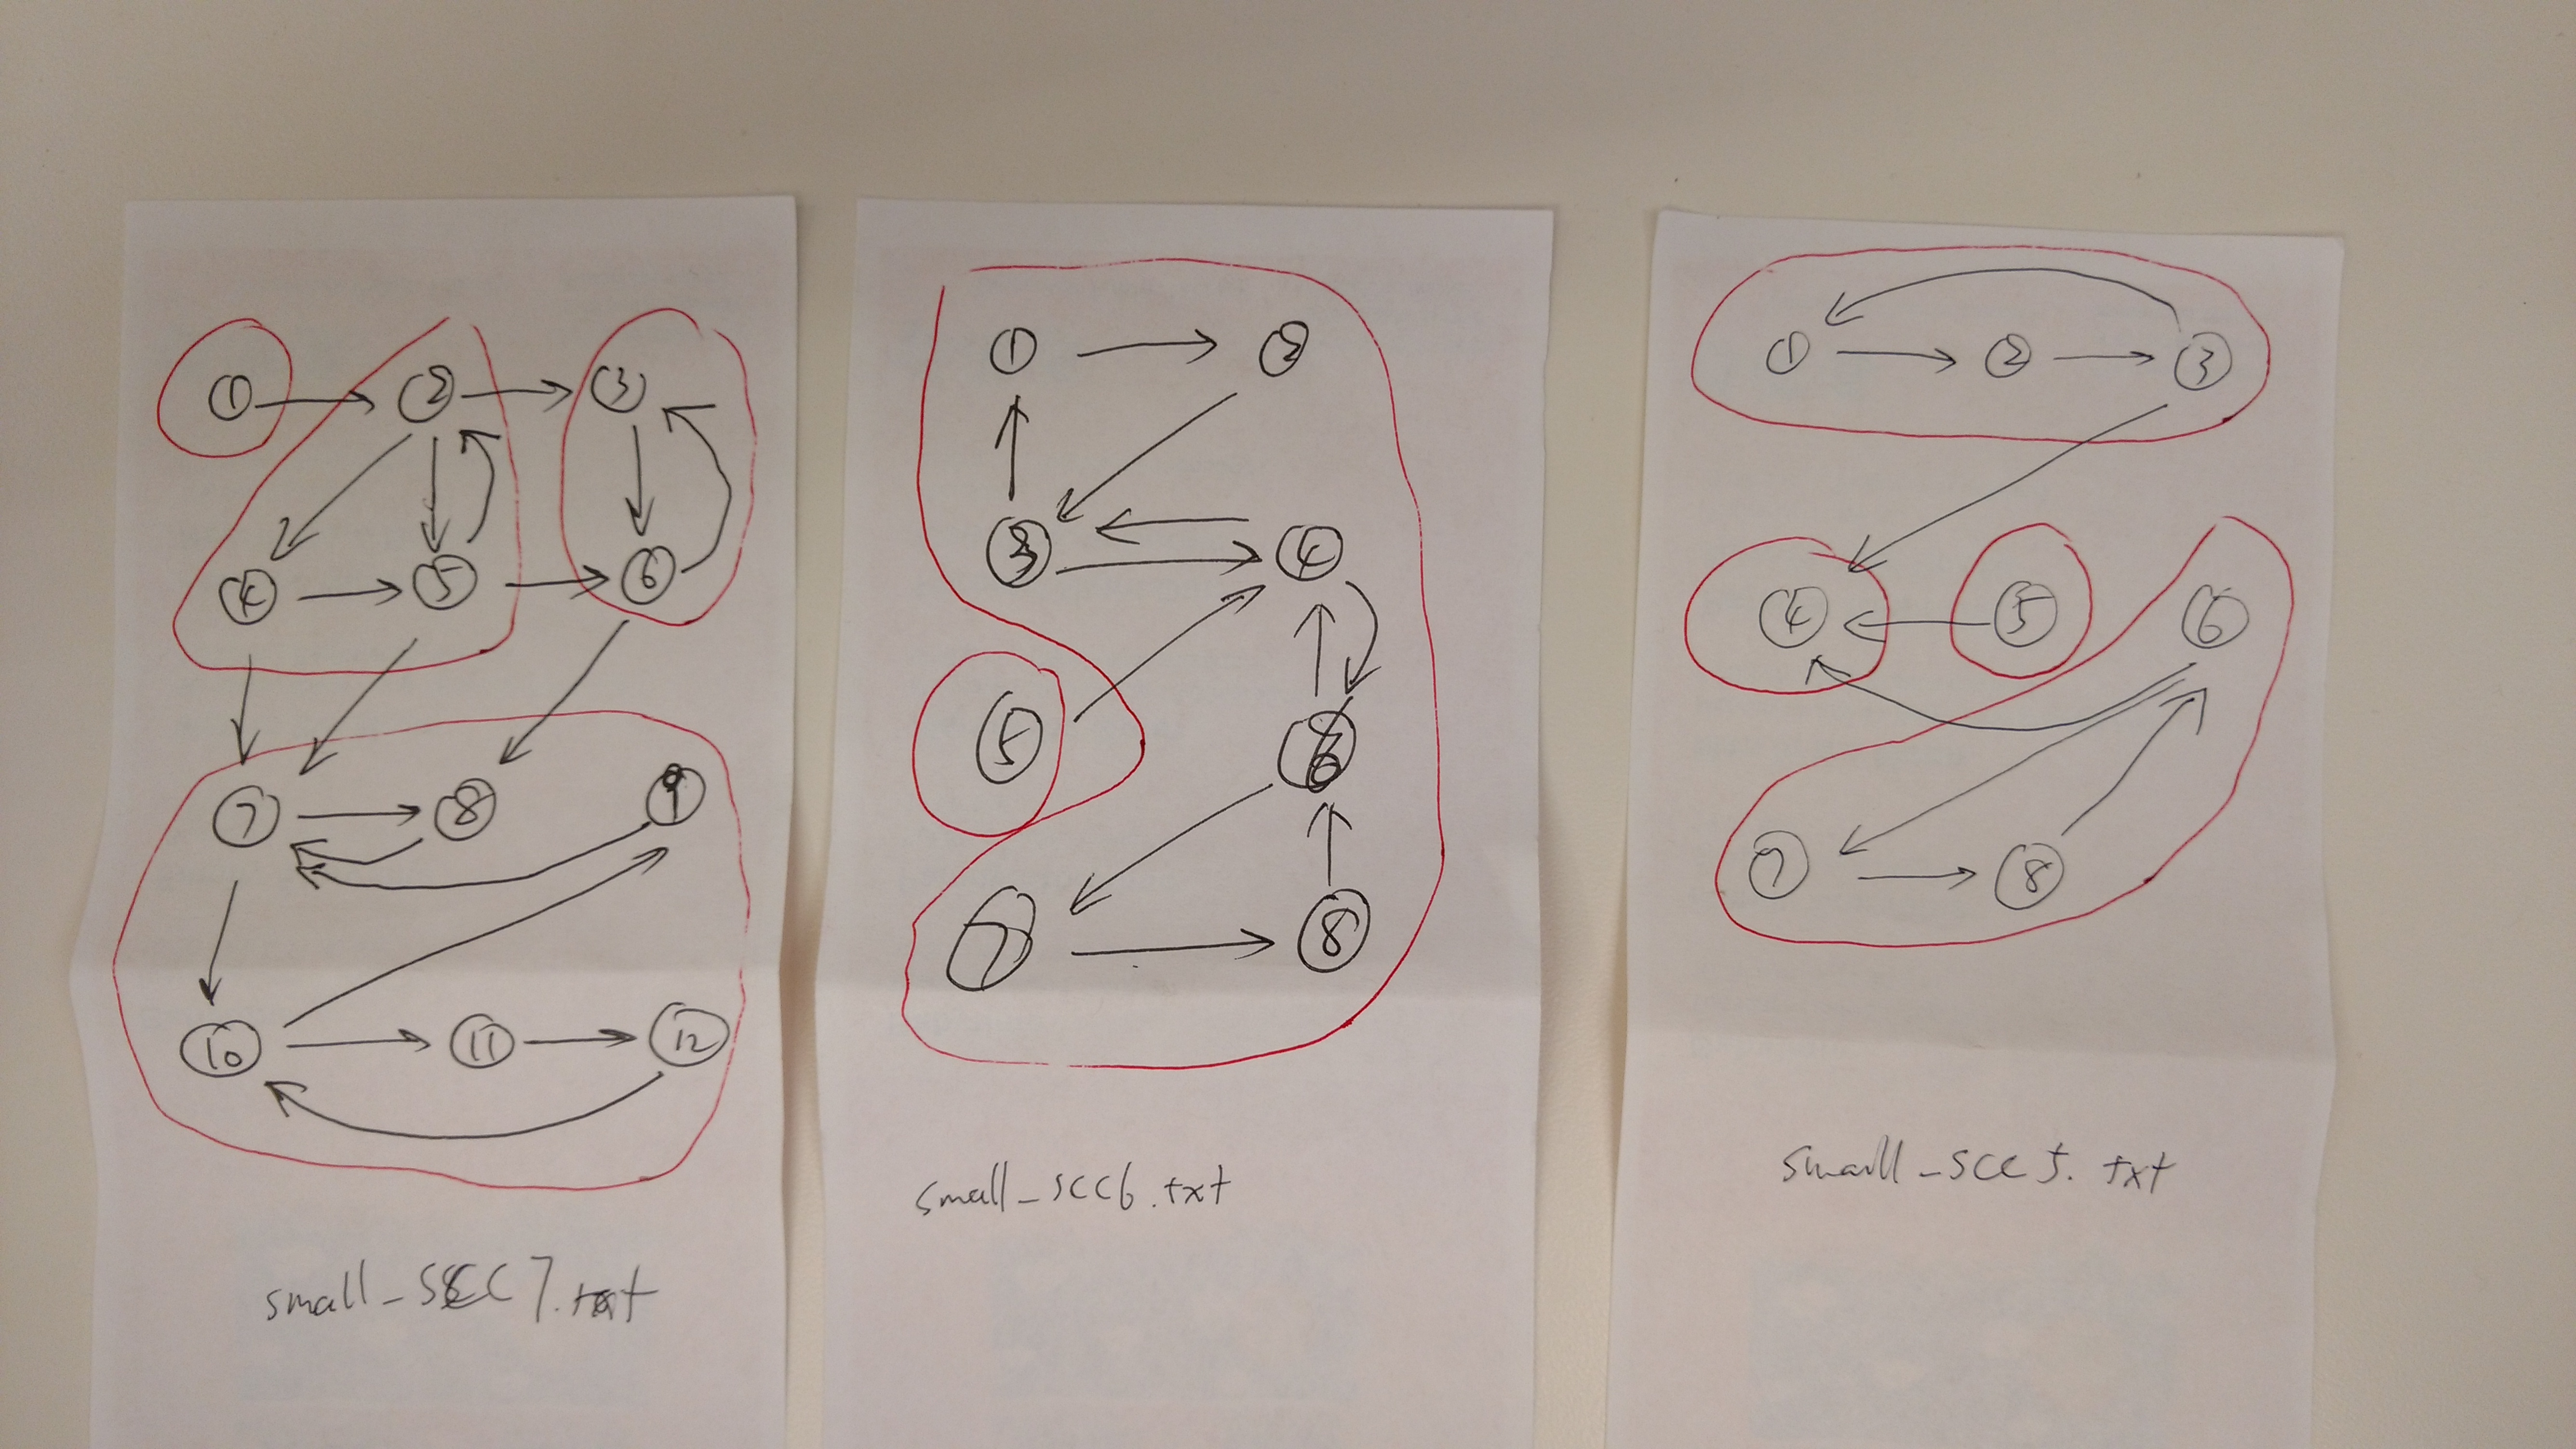 1 2 3
4 5 6
7 8 9
10 11 12
small_SCC7.txt
1 2
3 4
5 6
7 8
small_SCC6.txt
1 2 3
4 5 6
7 8
small_SCC5.txt